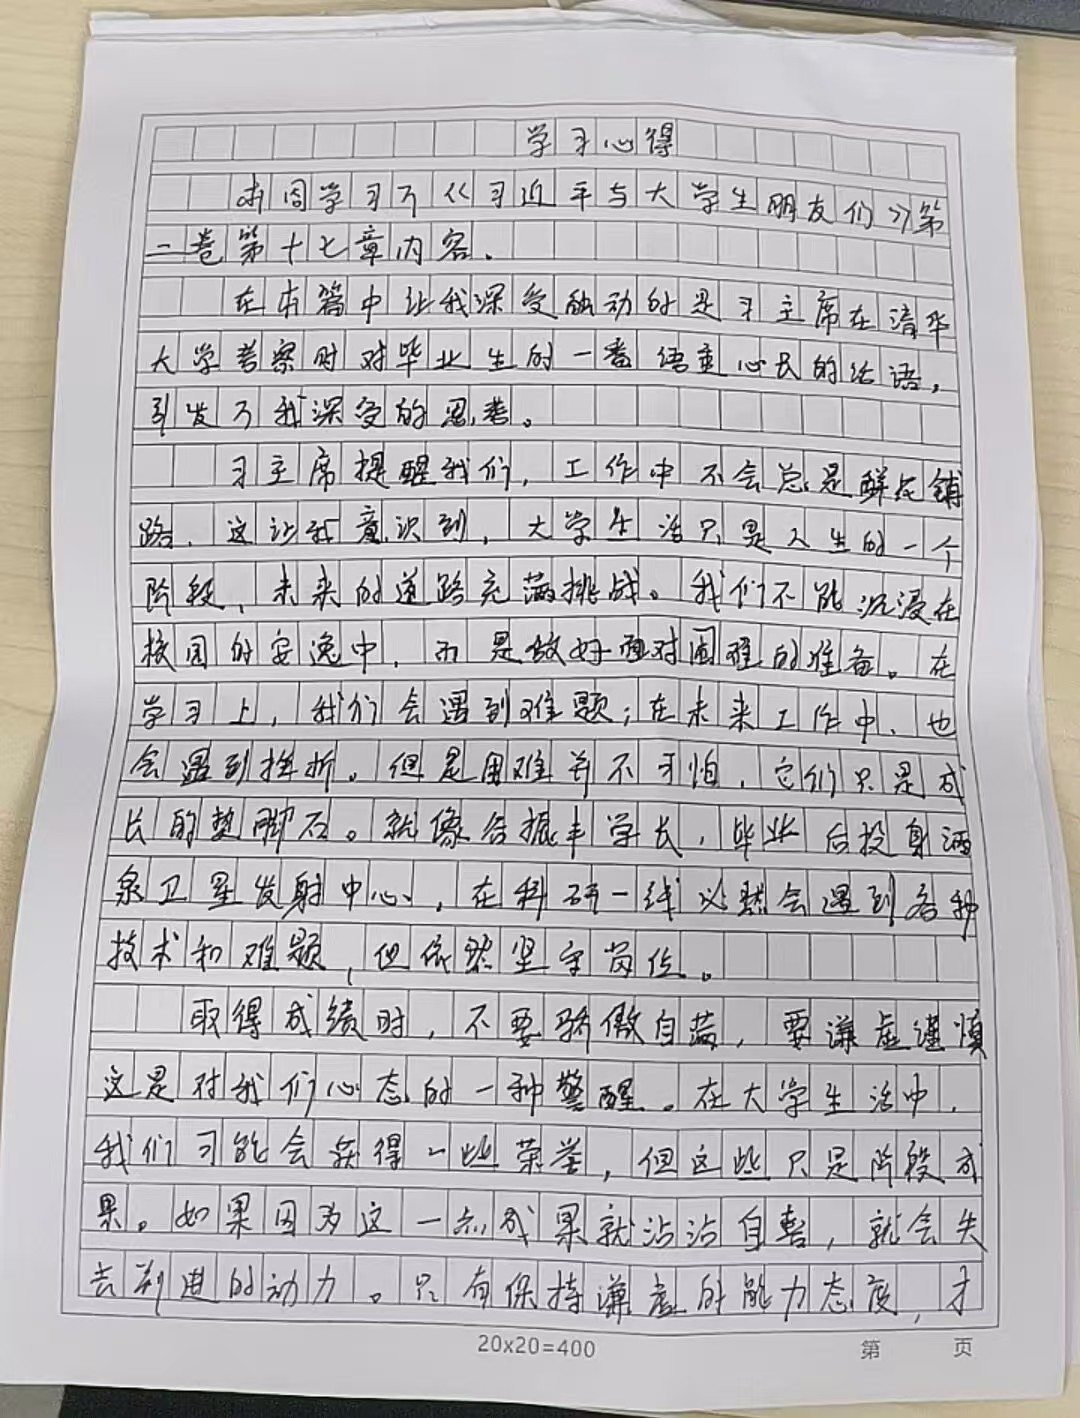 学习心得
本周学习了《习近平与大学生朋友们》第
二卷第十七章内容.
在本篇中让我深受触动的是习主席在清华
大学考察时对毕业生的一番语重心长的话语,
引发了我深受的思考。
习主席提醒我们,工作中不会总是鲜花铺
路、这让我意识到,大学生活只是人生的一个
阶段、未来的道路充满挑战。我们不能沉浸在
校园的安逸中、而是做好面对困难的准备。在
学习上,我们会遇到难题;在未来工作中、也
会遇到挫折。但是困难并不可怕、它们只是成
长的垫脚石。就像谷振丰学长,毕业后投身酒
泉卫星发射中心、在科研一线必然会遇到各种
技术和难题,但依然坚守岗位。
取得成绩时,不要骄傲自满,要谦虚谨慎
这是对我们心态的一种警醒。在大学生活中、
我们可能会获得一些荣誉,但这些只是阶段成
果。如果因为这一点成果就沾沾自喜,就会失
去前进的动力。只有保持谦虚的能力态度,才
20×20=400
第 页